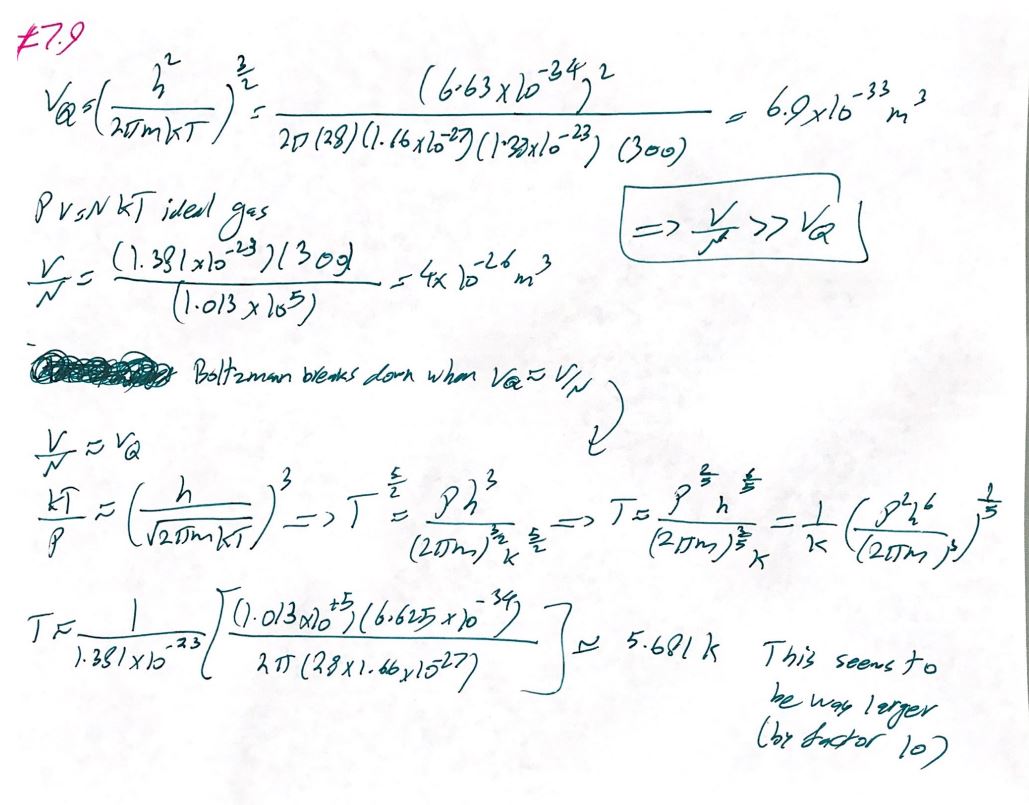 ≠7.9
V_Q = (h² / 2πmkT)^(3/2) = (6.63 x 10^-34)² / 2π (28) (1.16 x 10^-27) (1.38x10^-23) (300) = 6.9 x 10^-33 m³
PV = NkT ideal gas
=> V/N >> V_Q
V/N = (1.381 x 10^-23) (300) / (1.013 x 10^5) = 4x 10^-26 m³
Boltzmann breaks down when V_Q ≈ V/N
V/N ≈ V_Q
kT/P ≈ (h / √2πmkT)³ => T^(5/2) ≈ Ph³ / (2πm)^(3/2) k^(5/2) => T ≈ P^(2/5) h^(6/5) / (2πm)^(3/5) k = 1/k (P²h⁶ / (2πm)³)^(1/5)
T ≈ 1 / 1.381 x 10^-23 [(1.013 x 10^+5) (6.625 x 10^-34) / 2π (28 x 1.66 x 10^27)] ≈ 5.681 k
This seems to
be way larger
(by factor 10)